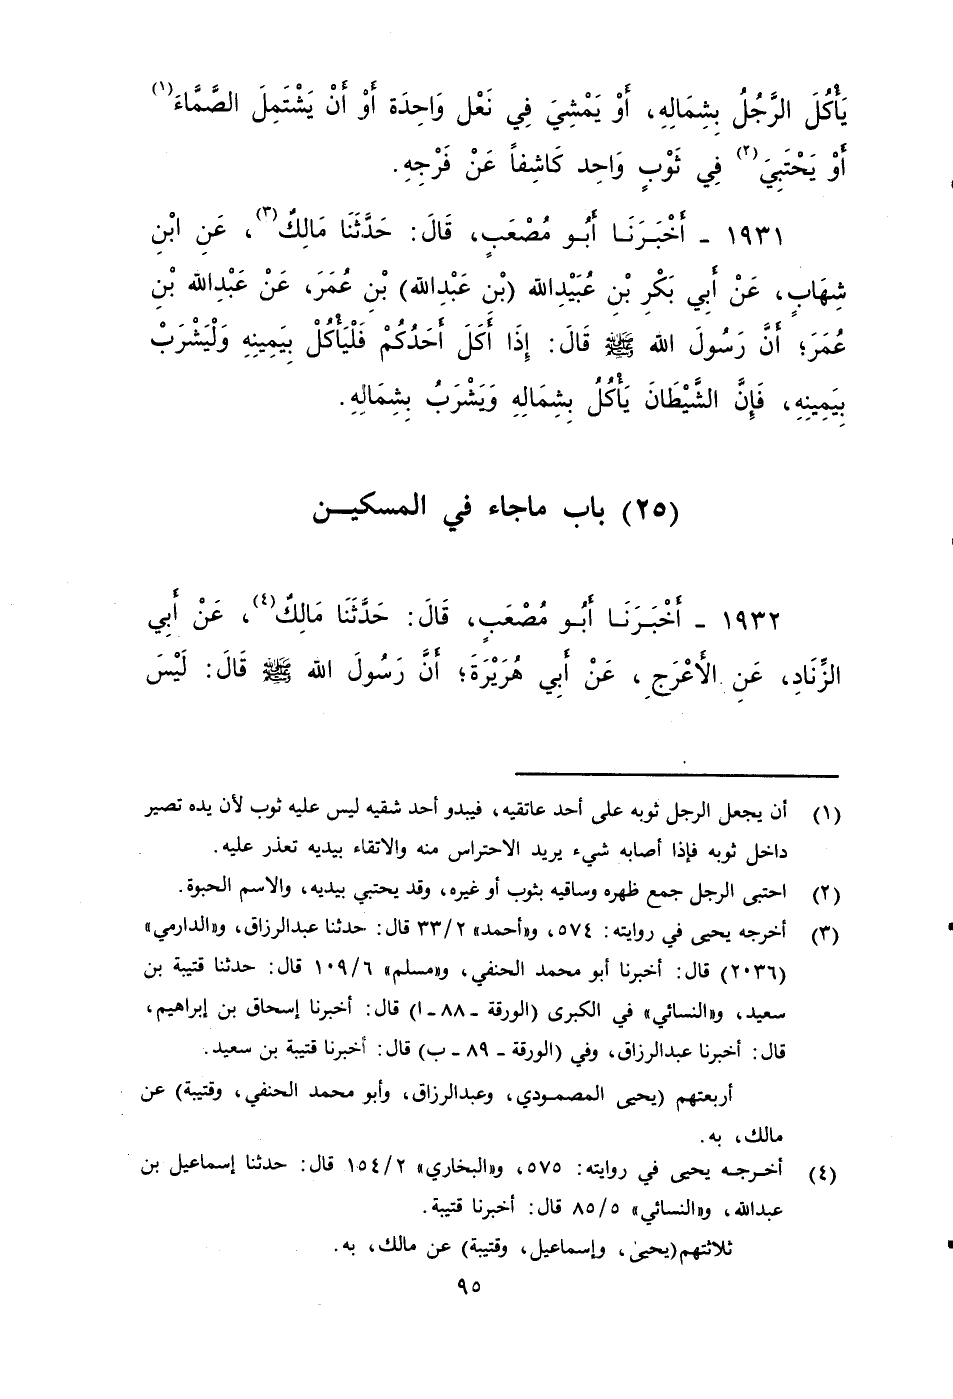 يَأْكُلَ الرَّجُلُ بِشِمَالِهِ، أَوْ يَمْشِيَ فِي نَعْلٍ وَاحِدَة أَوْ أَنْ يَشْتَمِلَ الصَّمَّاءَ(١)
أَوْ يَحْتَبِيَ(٢) فِي ثَوْبٍ وَاحِدٍ كَاشِفاً عَنْ فَرْجِهِ.
١٩٣١ - أَخْبَرَنَا أَبُو مُصْعَبٍ، قَالَ: حَدَّثَنَا مَالِكٌ(٣)، عَنِ ابْنِ
شِهَابٍ، عَنْ أَبِي بَكْرِ بْنِ عُبَيْدِالله (بْنِ عَبْدِالله) بْنِ عُمَرَ، عَنْ عَبْدِالله بْنِ
عُمَرَ؛ أَنَّ رَسُولَ الله ﷺ قَالَ: إِذَا أَكَلَ أَحَدُكُمْ فَلْيَأْكُلْ بِيَمِينِهِ وَلْيَشْرَبْ
بِيَمِينِهِ، فَإِنَّ الشَّيْطَانَ يَأْكُلُ بِشِمَالِهِ وَيَشْرَبُ بِشِمَالِهِ.
(٢٥) باب ماجاء في المسكيـن
١٩٣٢ - أَخْبَرَنَا أَبُو مُصْعَبٍ، قَالَ: حَدَّثَنَا مَالِكٌ(٤)، عَنْ أَبِي
الزِّنَادِ، عَنِ الأَعْرَجِ، عَنْ أَبِي هُرَيْرَةَ؛ أَنَّ رَسُولَ الله ﷺ قَالَ: لَيْسَ
(١) أن يجعل الرجل ثوبه على أحد عاتقيه، فيبدو أحد شقيه ليس عليه ثوب لأن يده تصير
داخل ثوبه فإذا أصابه شيء يريد الاحتراس منه والاتقاء بيديه تعذر عليه.
(٢) احتبى الرجل جمع ظهره وساقيه بثوب أو غيره، وقد يحتبي بيديه، والاسم الحبوة.
(٣) أخرجه يحيى في روايته: ٥٧٤، و«أحمد» ٣٣/٢ قال: حدثنا عبدالرزاق، و«الدارمي»
(٢٠٣٦) قال: أخبرنا أبو محمد الحنفي، و«مسلم» ١٠٩/٦ قال: حدثنا قتيبة بن
سعيد، و«النسائي» في الكبرى (الورقة - ٨٨ - ا) قال: أخبرنا إسحاق بن إبراهيم،
قال: أخبرنا عبدالرزاق، وفي (الورقة - ٨٩ - ب) قال: أخبرنا قتيبة بن سعيد.
أربعتهم (يحيى المصمودي، وعبدالرزاق، وأبو محمد الحنفي، وقتيبة) عن
مالك، به.
(٤) أخرجه يحيى في روايته: ٥٧٥، و«البخاري» ١٥٤/٢ قال: حدثنا إسماعيل بن
عبدالله، و«النسائي» ٨٥/٥ قال: أخبرنا قتيبة.
ثلاثتهم(يحيى، وإسماعيل، وقتيبة) عن مالك، به.
٩٥